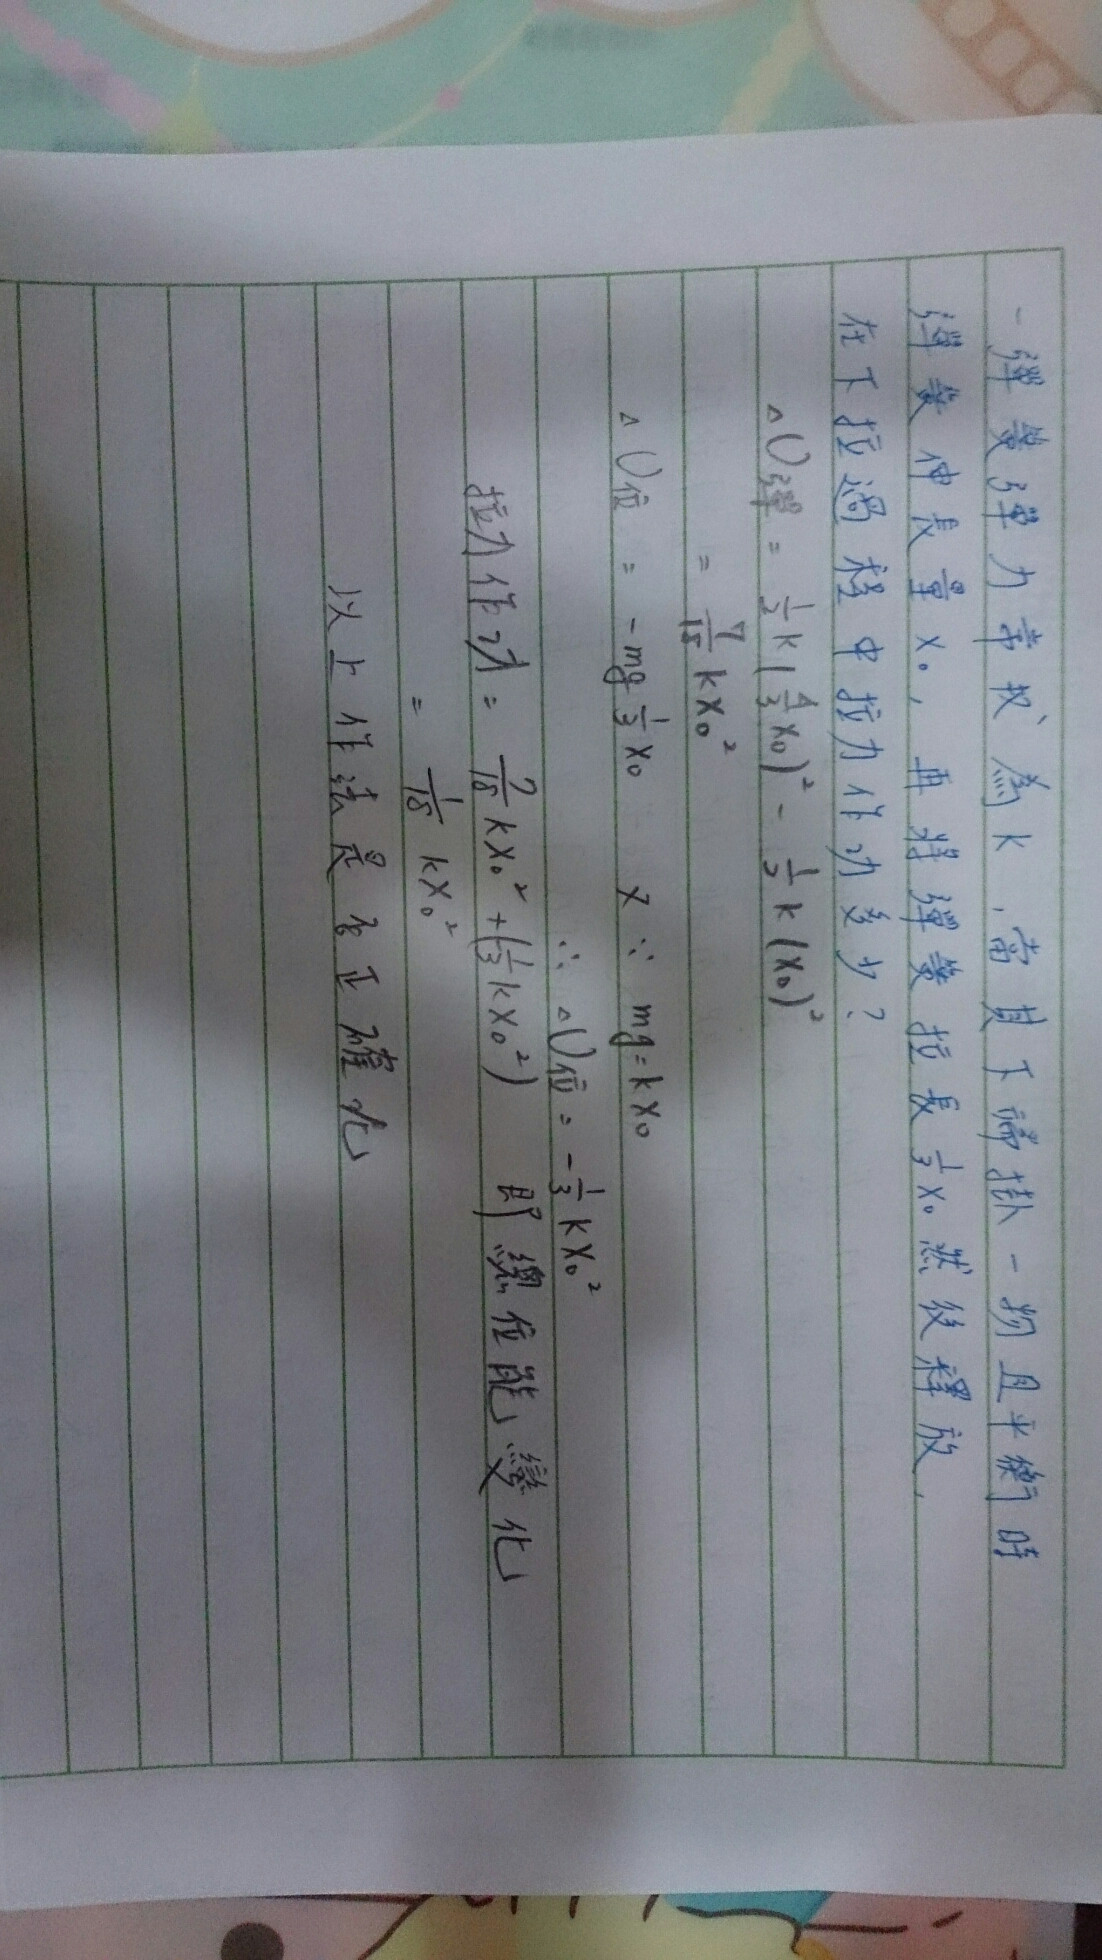 一彈簧彈力常數為K,當其下端掛一物且平衡時
彈簧伸長量x₀,再將彈簧拉長1/3 x₀然後釋放,
在下拉過程中拉力作功多少?
△U彈 = 1/2 k(4/3 x₀)² - 1/2 k(x₀)²
= 7/18 kx₀²
△U位 = -mg 1/3 x₀ 又∵ mg=kx₀
∴ △U位 = -1/3 kx₀²
拉力作功 = 7/18 kx₀² + (-1/3 kx₀²) 即總位能變化
= 1/18 kx₀²
以上作法是否正確